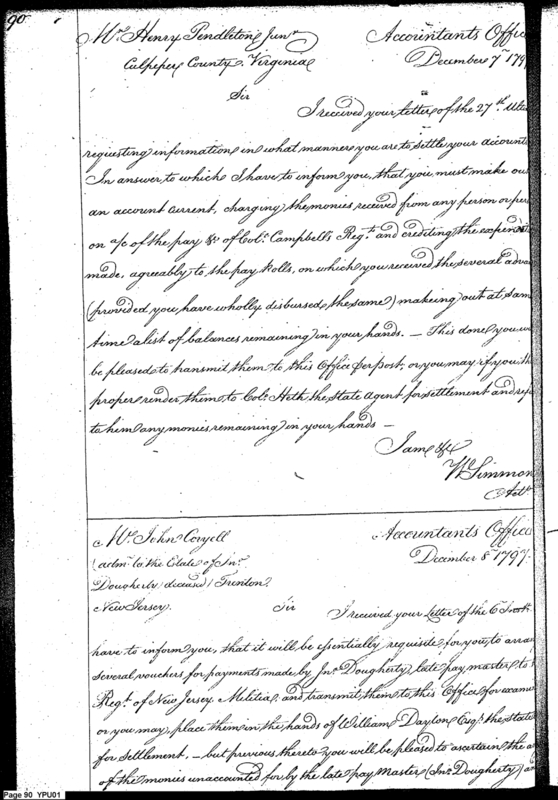 90
Mr. Henry Pendleton Junr
Culpeper County Virginia
Accountants Offic
December 7th 179
Sir
I received your letter of the 27th Ulti
requesting information in what manner you are to settle your accounts
In answer to which I have to inform you, that you must make ou
an account current, charging the monies received from any person or per
on a/c of the pay &c of Colo. Campbell's Regt. and crediting the expendit
made, agreably to the pay Rolls, on which you received the several advan
(provided you have wholly disbursed the same) makeing out at same
time a list of balances remaining in your hands. — This done you wi
be pleased to transmit them to this Office per post, or you may if you th
proper render them to Colo. Heth the State Agent for settlement and
to him any monies remaining in your hands —
I am &c
Wm Simmon
Actt.
Mr. John Coryell
(admr. to the Estate of Jno.
Dougherty deceased) Trenton
New Jersey.
Accountants Offic
December 8th 1797.
Sir
I received your Letter of the 6th
have to inform you, that it will be essentially requisite for you, to arran
several vouchers for payments made by Jno. Dougherty, late pay master to
Regt. of New Jersey Militia, and transmit them to this Office for exami
or you may place them in the hands of William Dayton Esqr. the State
for settlement, — but previous thereto you will be pleased to ascertain the a
of the monies unaccounted for by the late pay Master (Jno. Dougherty) an
Page 90 YPU01